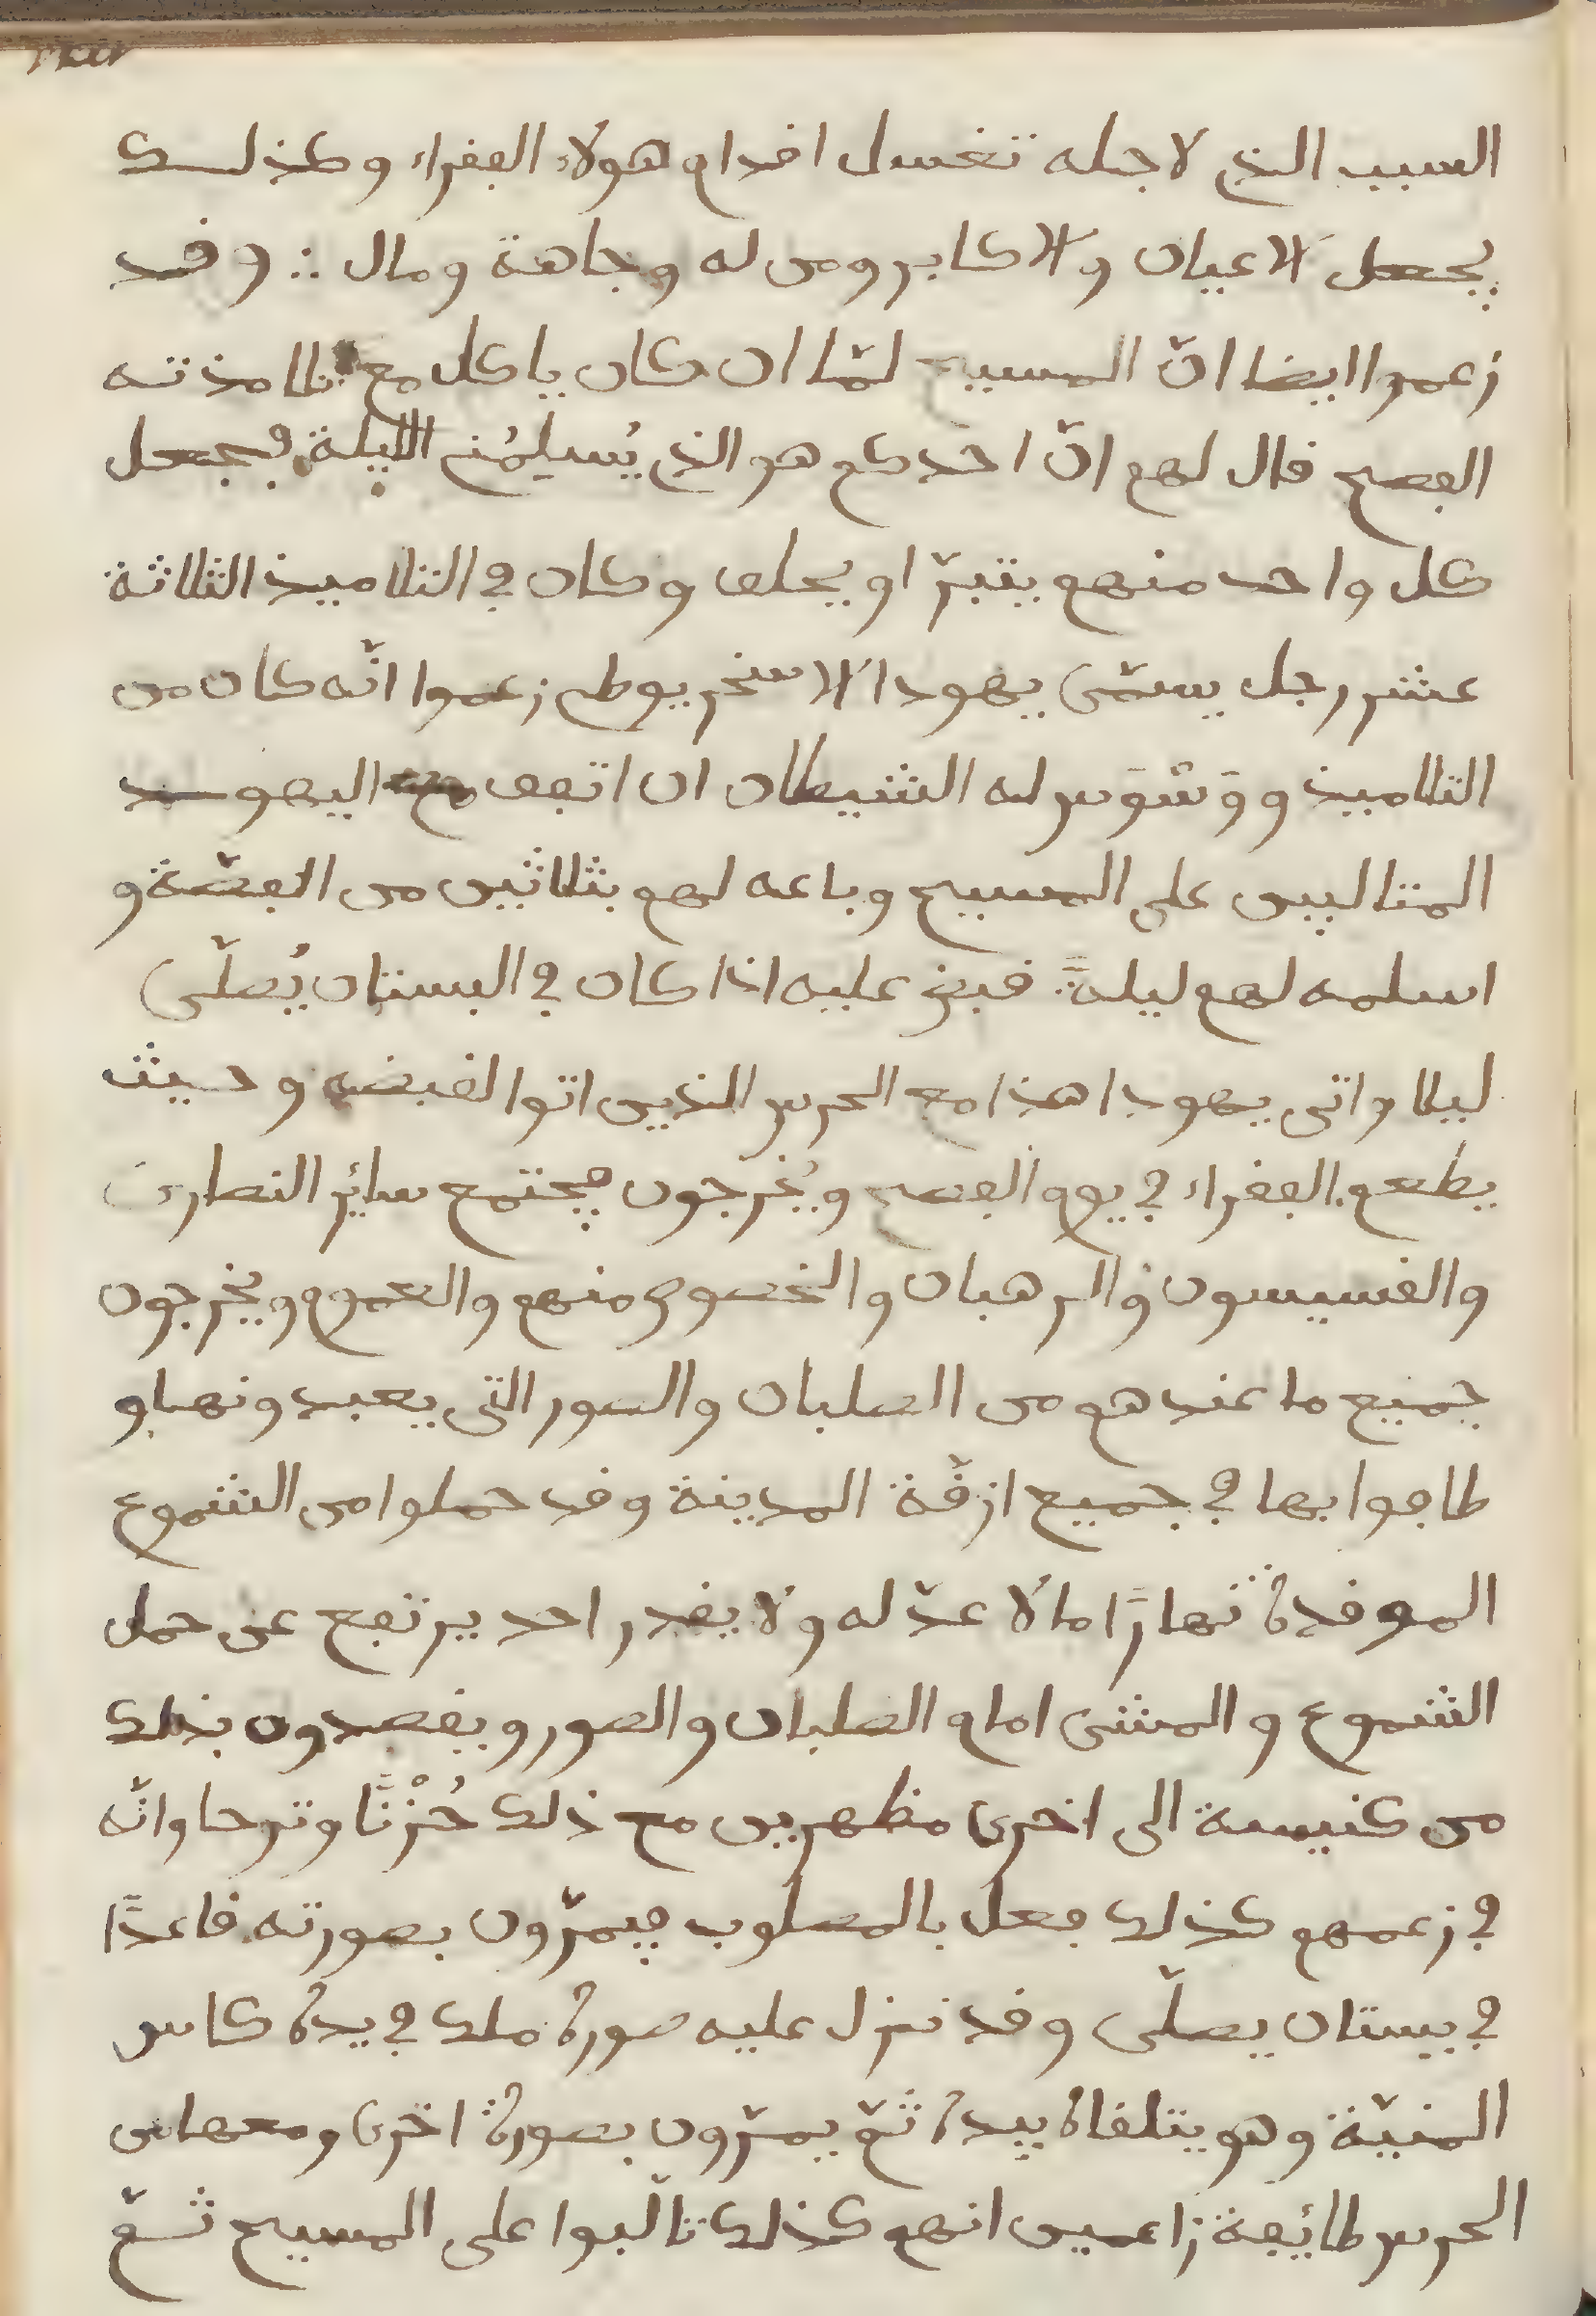 السبب الذي لاجله تغسل اقدام هولاء الفقراء وكذلك
يفعل الاعيان والاكابر ومن له وجاهة ومال ؞ وقد
زعموا ايضا انّ المسيح لمّا ان كان ياكل مع تلامذته
الفصح قال لهم انّ احدكم هو الذي يُسلِمُني الليلة فجعل
كل واحد منهم يتبرّا ويحلف وكان في التلاميذ الثلاثة
عشر رجل يسمّى يهودا الاسخريوطي زعموا انّه كان من
التلاميذ ووَسْوَس له الشيطان ان اتفق مع اليهود
المتالبين على المسيح وباعه لهم بثلاثين من الفضّة و
اسلمه لهم ليلةً فبض عليه اذا كان في البستان يُصلّى
ليلا واتى يهودا هذا مع الحرس الذين اتوا لقبضه وحيث
يطعم الفقراء في يوم الفصح ويُخرَجون فيجتمع سائر النصارى
والقسيسون والرهبان والخصوص منهم والعموم ويخرجون
جميع ما عندهم من الصلبان والصور التي يعبدونها و
طافوا بها في جميع ازقّة المدينة وقد حملوا من الشموع
الموقدة نهارًا ما لا عدّ له ولا يقدر احد يرتفع عن حمل
الشموع والمشى امام الصلبان والصور ويقصدون بذلك
من كنيسة الى اخرى مظهرين مع ذلك حُزْنًا وترحا وانّه
في زعمهم كذلك فعل بالمصلوب فيمرّون بصورته قاعدًا
في بستان يصلّى وقد نزل عليه صورة ملك في يده كاس
المنيّة وهو يتلقاه بيده ثمّ يمرّون بصورة اخرى ومعها من
الحرس طائفة زاعمين انهم كذلك تالّبوا على المسيح ثمّ